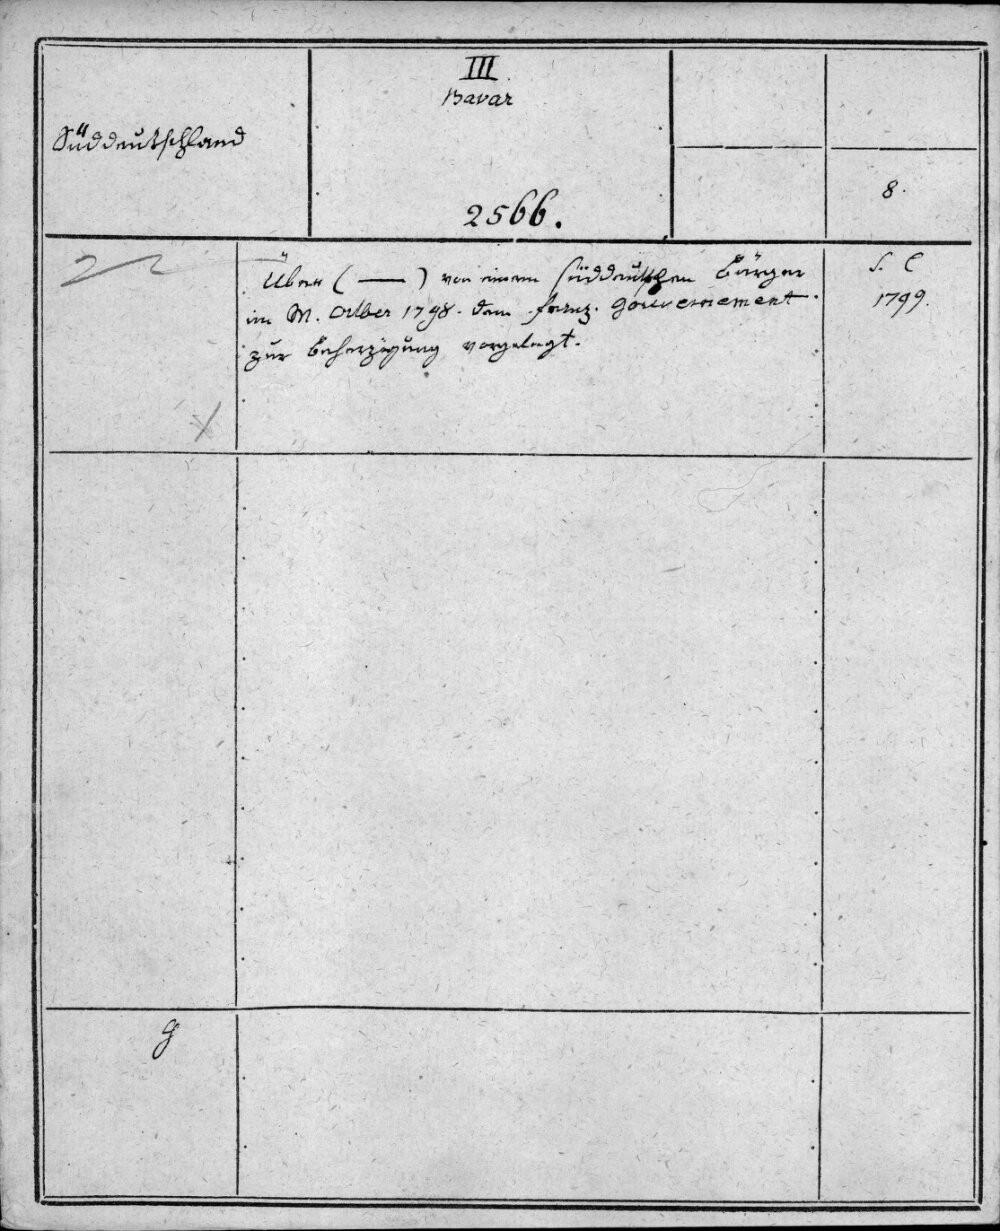 Süddeutschland
III
Bavar
2566.
8.
Über (—) von einem süddeutschen Bürger
im M. 8ber 1798. dem franz. Gouvernement
zur Beherzigung vorgelegt.
S. l
1799.
g